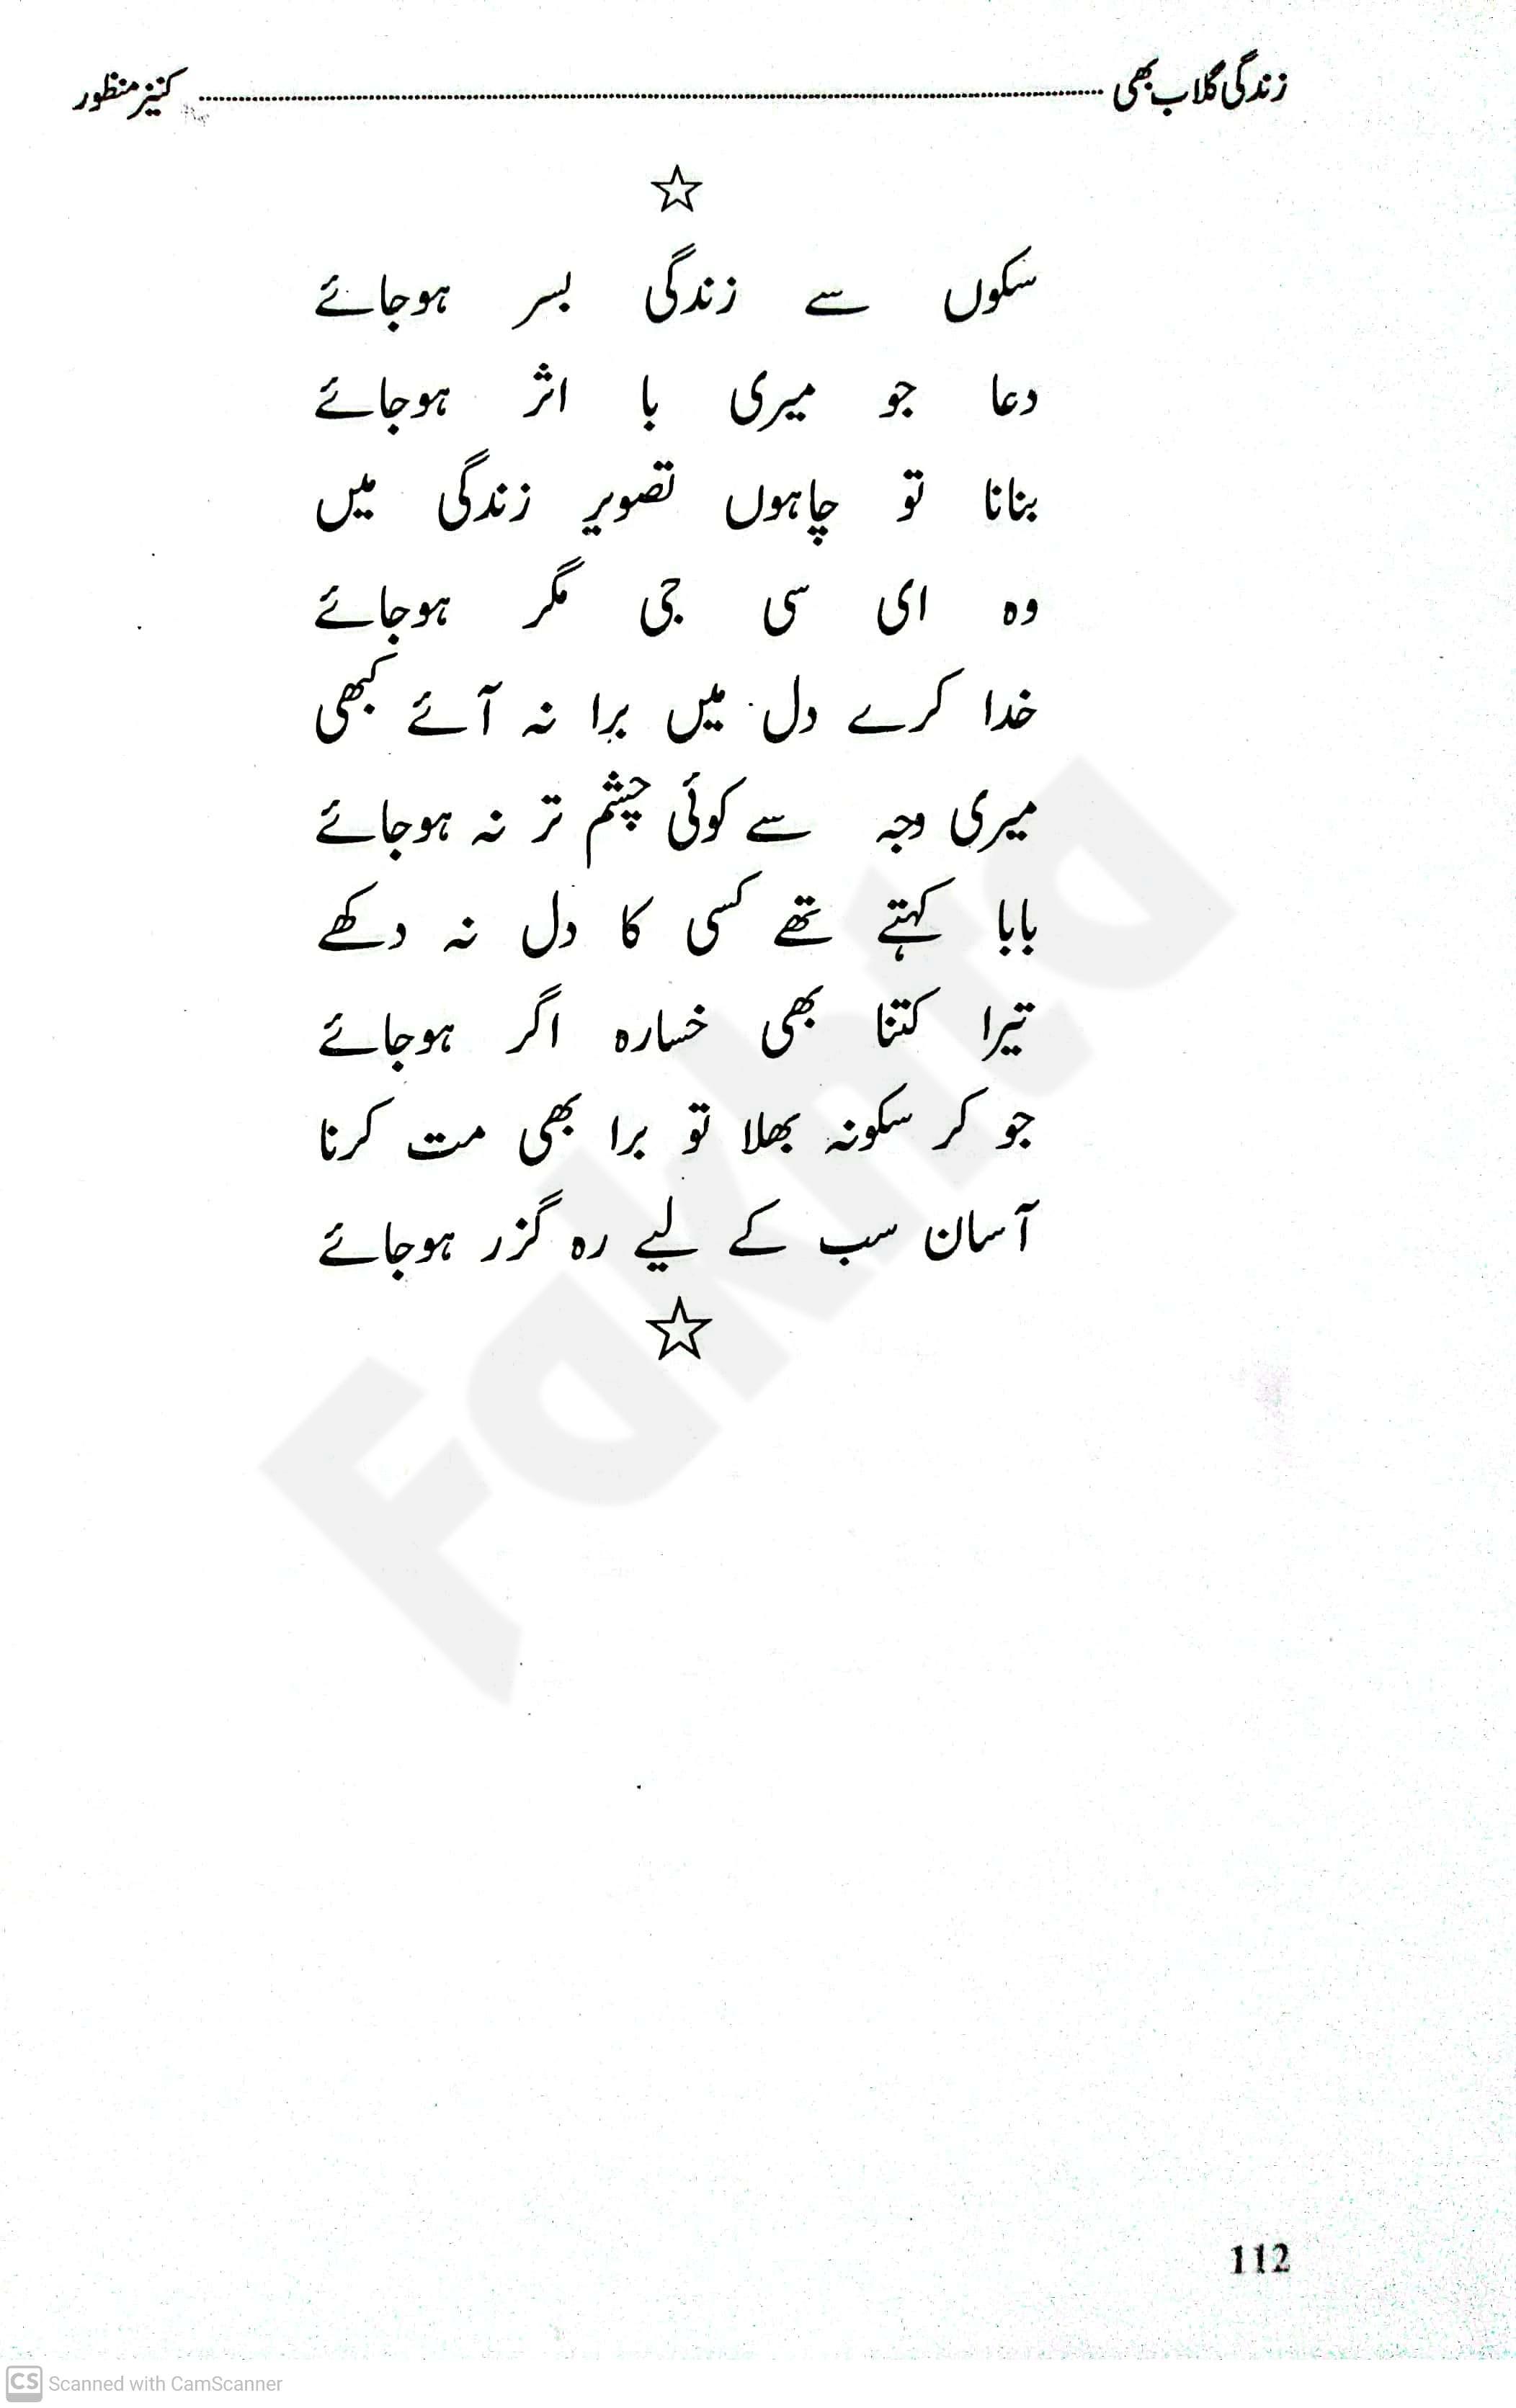 زندگی گلاب بھی ........ کنیز منظور
☆
سکوں سے زندگی بسر ہوجائے
دعا جو میری با اثر ہوجائے
بنانا تو چاہوں تصویرِ زندگی میں
وہ ای سی جی مگر ہوجائے
خدا کرے دل میں برا نہ آئے کبھی
میری وجہ سے کوئی چشم تر نہ ہوجائے
بابا کہتے تھے کسی کا دل نہ دکھے
تیرا کتنا بھی خسارہ اگر ہوجائے
جو کر سکونہ بھلا تو برا بھی مت کرنا
آسان سب کے لیے رہ گزر ہوجائے
☆
Fakhta
112
CS Scanned with CamScanner